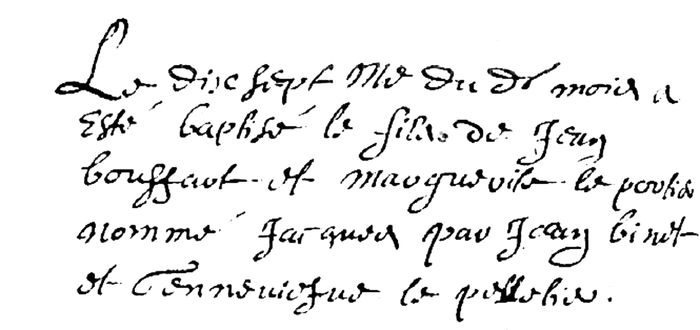 Le dixsept Me du dt mois a
Esté baptisé le filz de Jean
bouffart et marguerite le portie
nommé Jacques par Jean binet
et Jenneviefve le pelletier.